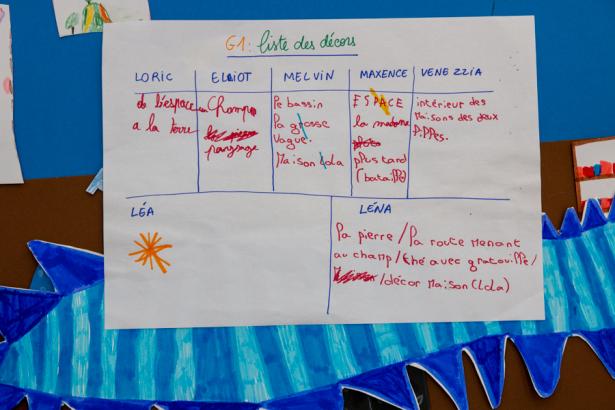 G1: liste des décors
LORIC
ELLIOT
MELVIN
MAXENCE
VENEZZIA
de l'espace
a la terre
en Champ
pansage
le bassin
la grosse
Vague.
Maison Lola
ESPACE
la maison
photo
plus tard
(bataille)
intérieur des
Maisons des deux
filles.
LÉA
LÉNA
la pierre / la route menant
au champ / thé avec gratouille /
/ décor Maison (Lola)